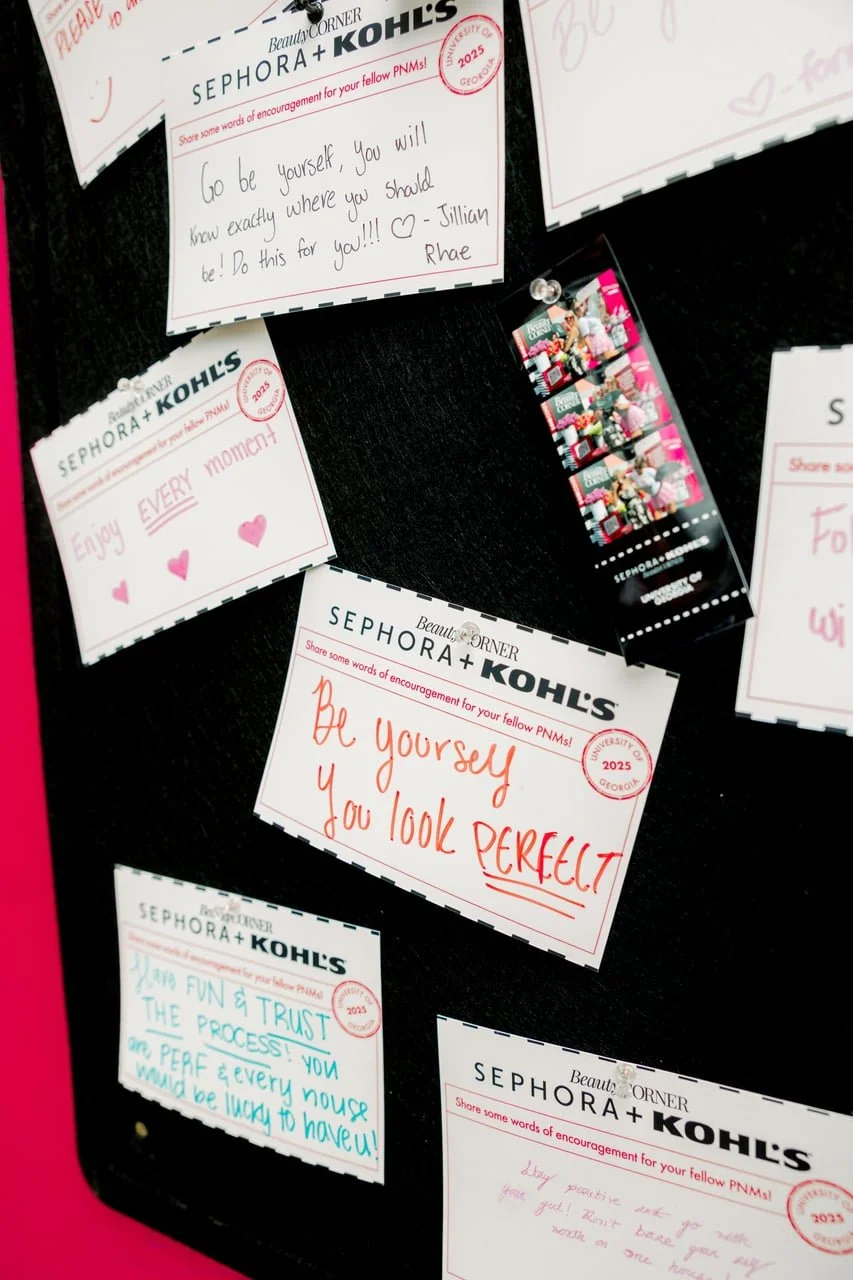 PLEASE
to
BeautyCORNER
SEPHORA+KOHL'S
UNIVERSITY OF
2025
GEORGIA
Share some words of encouragement for your fellow PNMs!
Go be yourself, you will
know exactly where you should
be! Do this for you!!! ♡ - Jillian
Rhae
Be
BeautyCORNER
SEPHORA+KOHL'S
UNIVERSITY OF
2025
GEORGIA
Share some words of encouragement for your fellow PNMs!
Enjoy EVERY moment
SEPHORA+KOHL'S
UNIVERSITY OF
GEORGIA
S
Share so
Fol
wi
BeautyCORNER
SEPHORA+KOHL'S
Share some words of encouragement for your fellow PNMs!
UNIVERSITY OF
2025
GEORGIA
Be yourself
You look PERFECT
BeautyCORNER
SEPHORA+KOHL'S
Share some words of encouragement for your fellow PNMs!
UNIVERSITY OF
2025
GEORGIA
Have FUN & TRUST
THE PROCESS! you
are PERF & every house
would be lucky to have u!
BeautyCORNER
SEPHORA+KOHL'S
Share some words of encouragement for your fellow PNMs!
UNIVERSITY OF
2025
GEORGIA
Stay positive and go with
your gut! Don't base your self
worth on one house